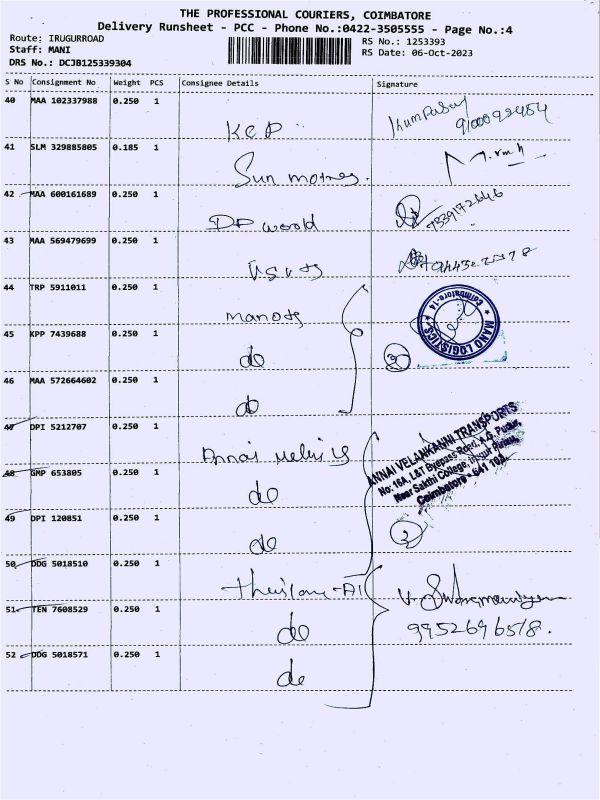 THE PROFESSIONAL COURIERS, COIMBATORE
Delivery Runsheet - PCC - Phone No.:0422-3505555 - Page No.:4
Route: IRUGURROAD
RS No.: 1253393
Staff: MANI
RS Date: 06-Oct-2023
DRS No.: DCJB125339304
S No Consignment No Weight PCS Consignee Details Signature
40 MAA 102337988 0.250 1
KCP
41 SLM 329885805 0.185 1
Sun
42 MAA 600161689 0.250 1
DP
43 MAA 569479699 0.250 1
44 TRP 5911011 0.250 1
45 KPP 7439688 0.250 1
do
46 MAA 572664602 0.250 1
do
MANO LOGISTICS
Coimbatore-14
2
47 DPI 5212707 0.250 1
Annai
ANNAI VELANKANNI TRANSPORTS
No: 16A, L&T Byepass Road, A.G. Pudur,
Near Sakthi College, Irugur Pirivu,
Coimbatore - 641 103.
48 GMP 653805 0.250 1
do
49 DPI 120851 0.250 1
do
50 DDG 5018510 0.250 1
51 TEN 7608529 0.250 1
do
9952696518.
52 DDG 5018571 0.250 1
do